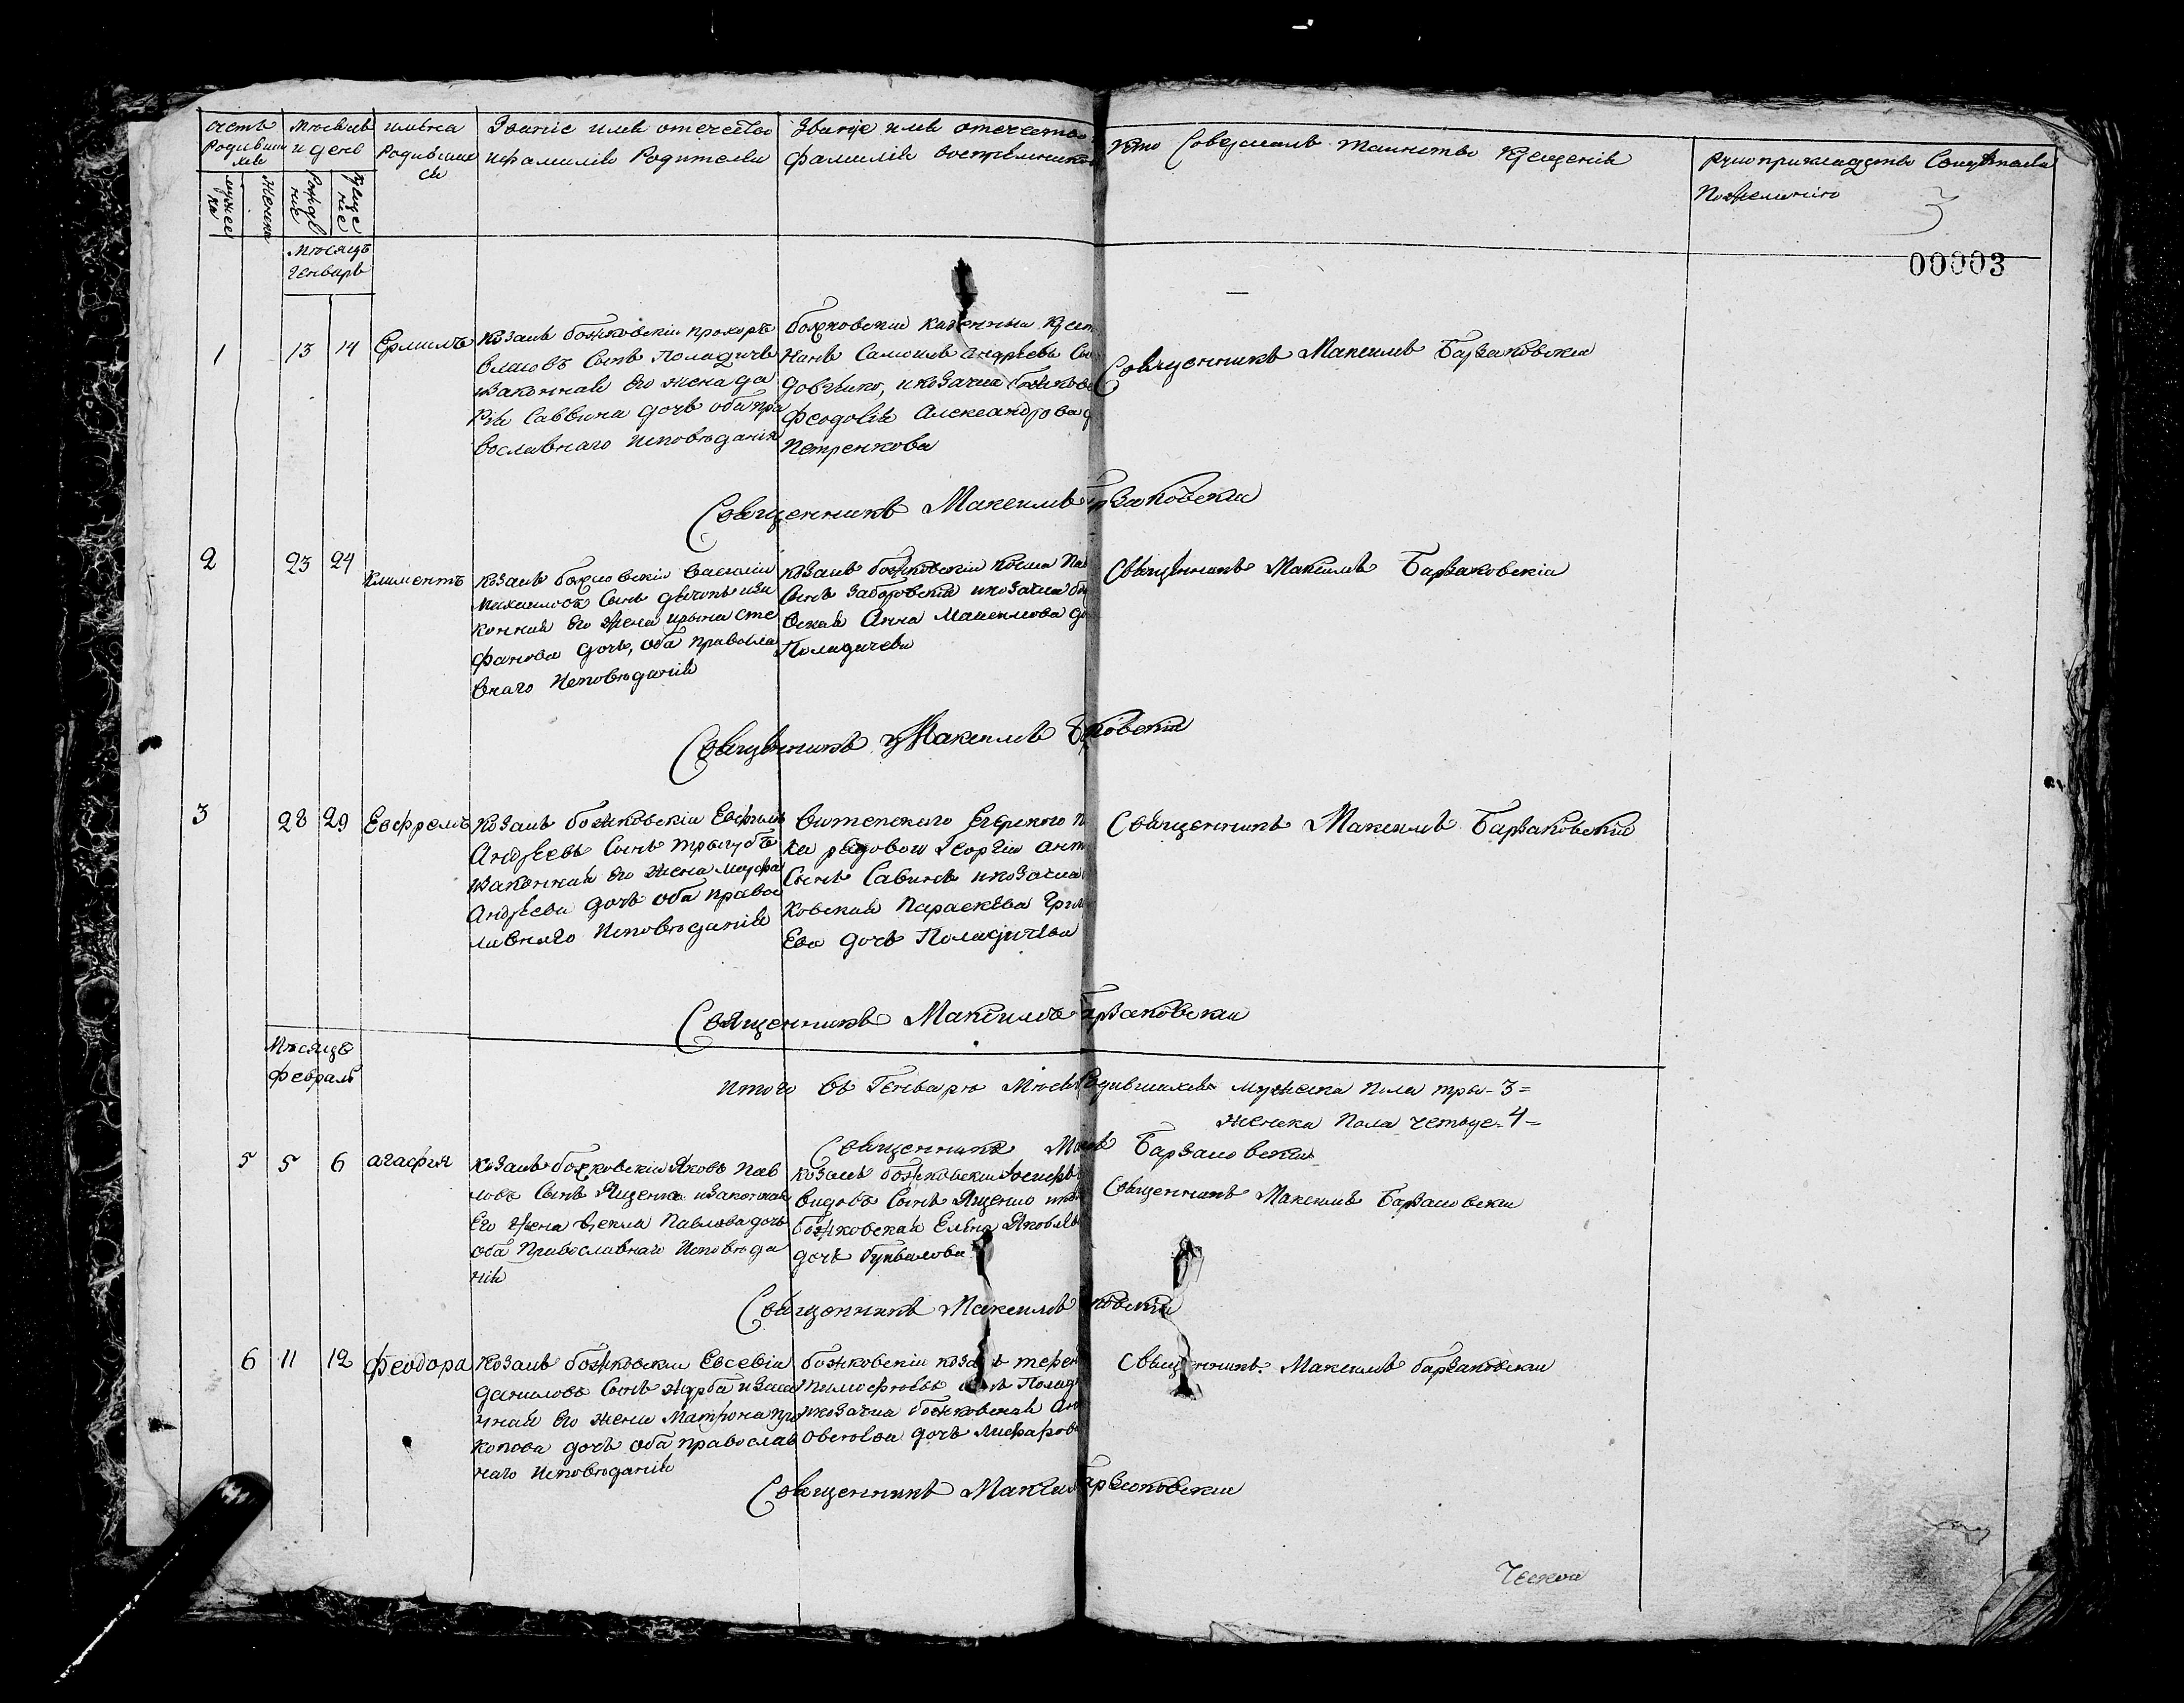 счетъ Родившихсе
мѣсяцъ и день
имена Родившихсе
Званіе имя отечество и фамилія Родителей
Званіе имя отечество фамилія восприемников
Кто Совершалъ таинство крещенія
Рукоприкладство Свидѣтелей
По желанію
мужеска
женска
Рождение
Крещение
3
00003
Мѣсяцъ
Генваръ
1
13
14
Ермилъ
Козакъ божковскій прохоръ
Власовъ Сынъ Поладичъ
изаконная Его жена да
рія Саввина дочъ оба пра
вославнаго исповѣданія
божковский казенный крест
Довгько, и козачка божков
Феодосія Александрова
Петренкова
Священникъ Максимъ Барзаковскій
Священникъ Максимъ рзаковскій
2
23
24
Климентъ
Козакъ божковскій Василій
Михайловъ Сынъ иза
конная Его жена ирына сте
фанова дочъ, оба правосла
внаго Исповѣданія
Козакъ божковскій Косма Па
Сынъ Заборовскій и козачка бо
вская Анна Максимова до
Поладичева
Священникъ Максимъ Барзаковскій
Священникъ Максимъ ковскій
3
28
29
Евфремъ
Козакъ божковскій Евфимъ
Андрѣевъ Сынъ трыгубъ
изаконная Его жена Марфа
Андрѣева дочъ оба право
славнаго Исповѣданія
Витепского Егерского п
ка рядовой Георгій ант
Сынъ Савинъ и козачка
ковская Параскѣва Григ
Ева дочъ Поладичева
Священникъ Максимъ Барзаковскій
Священникъ Максимъ Барзаковскій
Мѣсяцъ
Февралъ
итого въ Генварѣ Мѣся Родившихся мужеска Пола тры - 3 =
женска Пола четыре - 4 =
Священникъ Мак Барзаковскій
5
5
6
агафія
Козакъ божковскій Яковъ Пав
ловъ Сынъ Ященко изаконная
Его жена Фекла Павлова дочъ
оба Православнаго Исповѣда
нія
Козакъ божковскій
видовъ Сынъ Ященко и коз
божковская Елена Яковлѣ
дочъ Буквалова
Священникъ Максимъ Барзаковскій
Священникъ Максимъ ковскій
6
11
12
Феодора
Козакъ божковскій Евсевій
даниловъ Сынъ изако
нная Его жена Матрона про
копова дочъ оба православ
наго Исповѣданія
божковскій коза ъ терен
тимофѣевъ Полад
и козачка божковская
овсіева дочъ
Священникъ Максимъ барзаковскій
Священникъ Макси арзаковскій